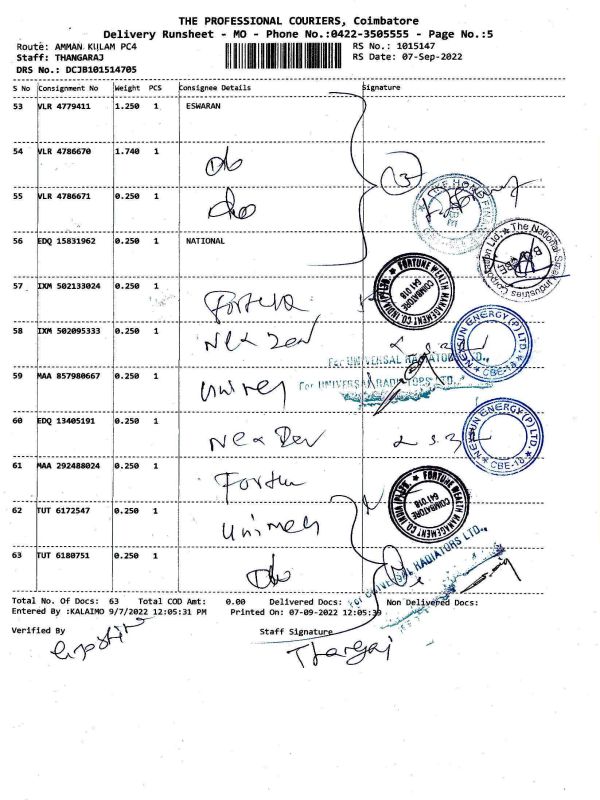 THE PROFESSIONAL COURIERS, Coimbatore
Delivery Runsheet - MO - Phone No.:0422-3505555 - Page No.:5
Route: AMMAN KULAM PC4 RS No.: 1015147
Staff: THANGARAJ RS Date: 07-Sep-2022
DRS No.: DCJB101514705
S No Consignment No Weight PCS Consignee Details Signature
53 VLR 4779411 1.250 1 ESWARAN
54 VLR 4786670 1.740 1 do
55 VLR 4786671 0.250 1 do
56 EDQ 15831962 0.250 1 NATIONAL
57 IXM 502133024 0.250 1 Fortune
58 IXM 502095333 0.250 1
59 MAA 857980667 0.250 1
60 EDQ 13405191 0.250 1
61 MAA 292488024 0.250 1
62 TUT 6172547 0.250 1
63 TUT 6180751 0.250 1 do
FORTUNE WEALTH MANAGEMENT CO INDIA (P) LTD. COIMBATORE 641 018
The National Small Industries Corporation Ltd.
NEXSUN ENERGY (P) LTD. CBE-18
For UNIVERSAL RADIATORS LTD.,
For UNIVERSAL RADIATORS LTD.,
NEXSUN ENERGY (P) LTD. CBE-18
FORTUNE WEALTH MANAGEMENT CO INDIA (P) LTD. COIMBATORE 641 018
For UNIVERSAL RADIATORS LTD.,
Total No. Of Docs: 63 Total COD Amt: 0.00 Delivered Docs: Non Delivered Docs:
Entered By :KALAIMO 9/7/2022 12:05:31 PM Printed On: 07-09-2022 12:05:39
Verified By Staff Signature
Thangaraj